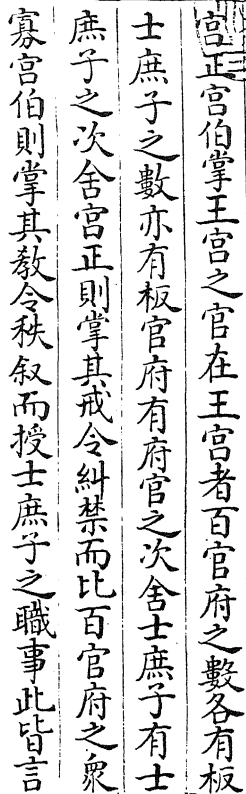 宫正宫伯掌王宫之官在王宫者百官府之數各有板
士庶子之數亦有板官府有府官之次舍士庶子有士
庶子之次舍宫正則掌其戒令糾禁而比百官府之衆
寡宫伯則掌其教令秩叙而授士庶子之職事此皆言